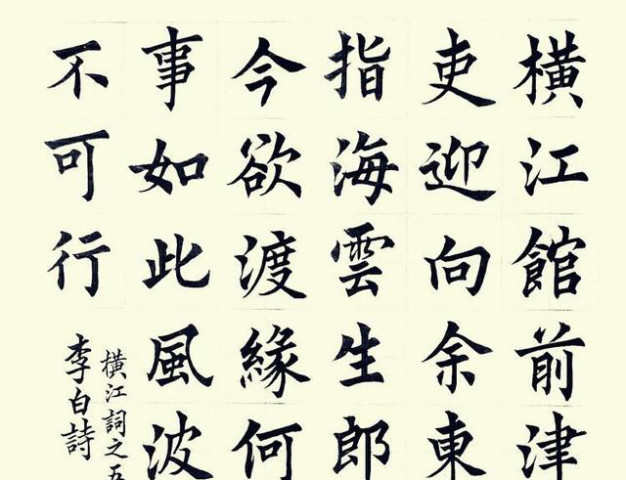 橫江館前津
吏迎向余東
指海雲生郎
今欲渡緣何
事如此風波
不可行
橫江詞之五
李白詩